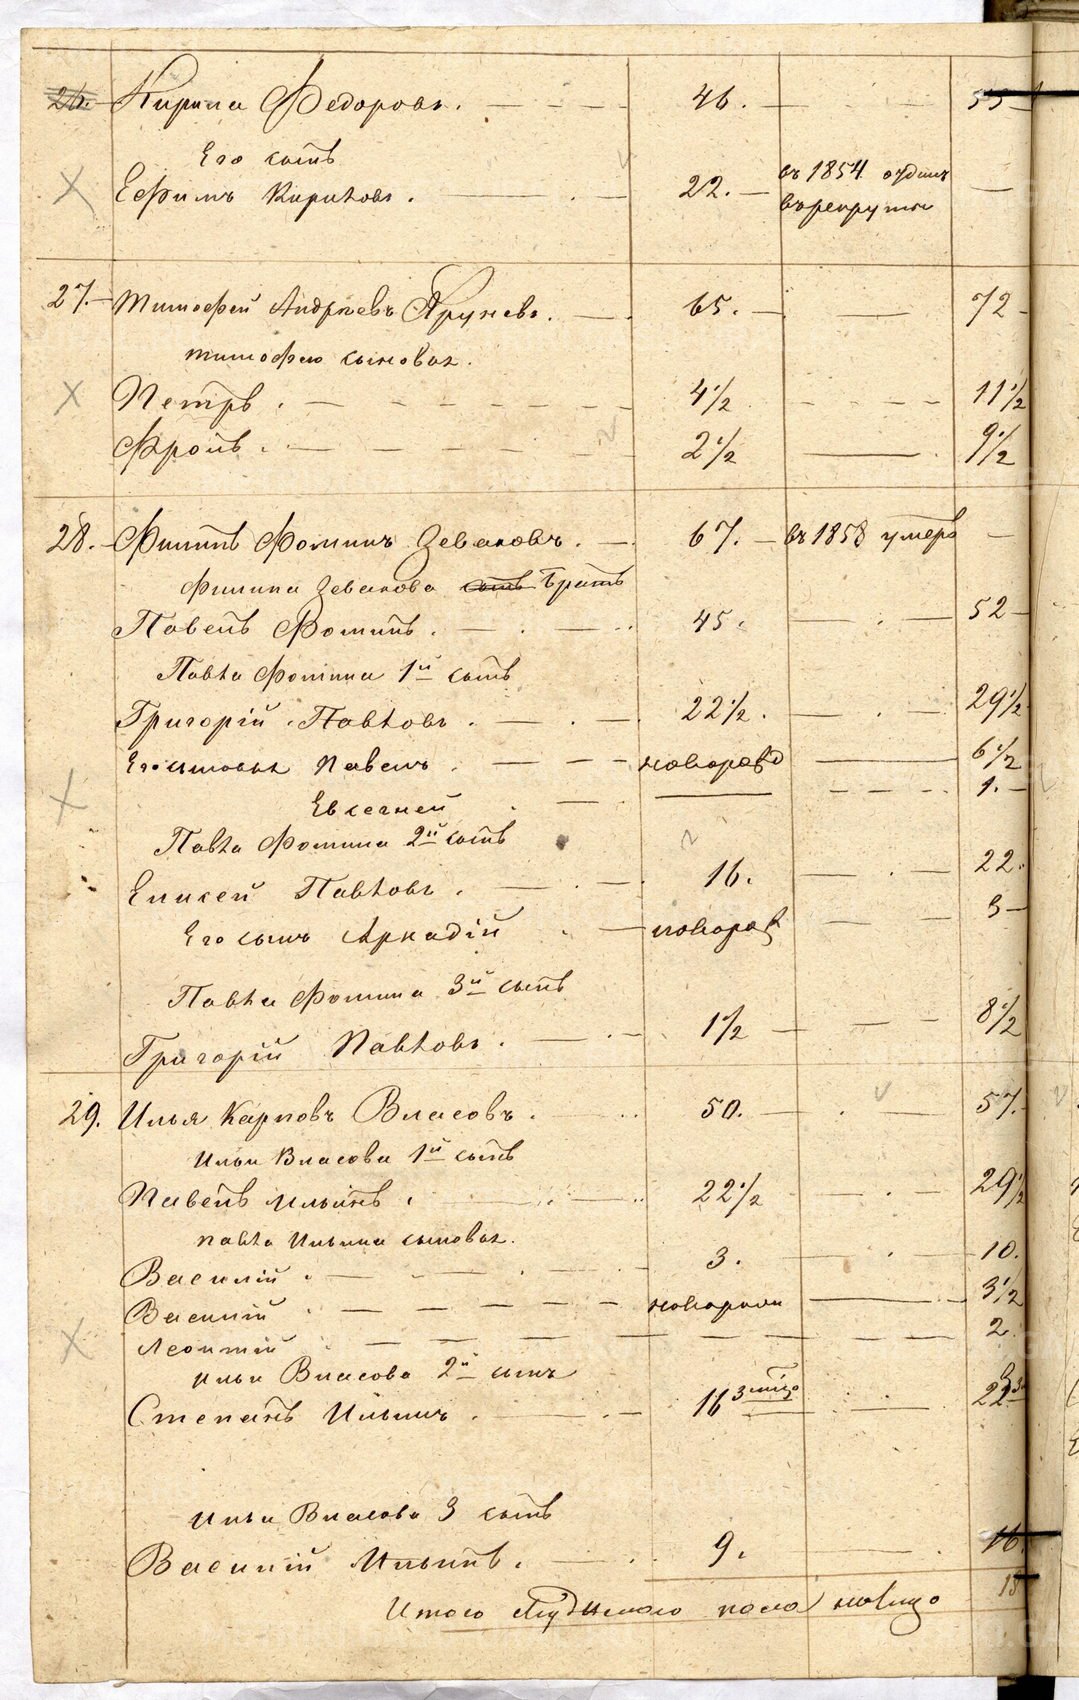 26. Кирила Федоровъ. 46. 55
Его сынъ
Ефимъ Кириловъ. 22. въ 1854 отданъ
въ рекруты
27. Тимофей Андреевъ 65. 72
Тимофея сыновья.
Петръ. 4 1/2 11 1/2
Фролъ. 2 1/2 9 1/2
28. Филипъ Фоминъ Зеваковъ. 67. въ 1858 умеръ
Филипа Зевакова сынъ братъ
Павелъ Фоминъ. 45. 52
Павла Фомина 1й сынъ
Григорій Павловъ. 22 1/2. 29 1/2
Его сыновья Павелъ. новорожд 6 1/2
Евсегней 1.
Павла Фомина 2й сынъ
Елисей Павловъ. 16. 22.
Его сынъ Аркадій новорож 3
Павла Фомина 3й сынъ
Григорій Павловъ. 1 1/2 8 1/2
29. Илья Карповъ Власовъ. 50. 57.
Ильи Власова 1й сынъ
Павелъ Ильинъ. 22 1/2 29 1/2
Павла Ильина сыновья.
Василій. 3. 10.
Василій новорожд 3 1/2
Леонтій 2.
Ильи Власова 2й сынъ
Степанъ Ильинъ. 16 23
Ильи Власова 3 сынъ
Василій Ильинъ. 9. 16.
Итого мужескаго пола налицо 15